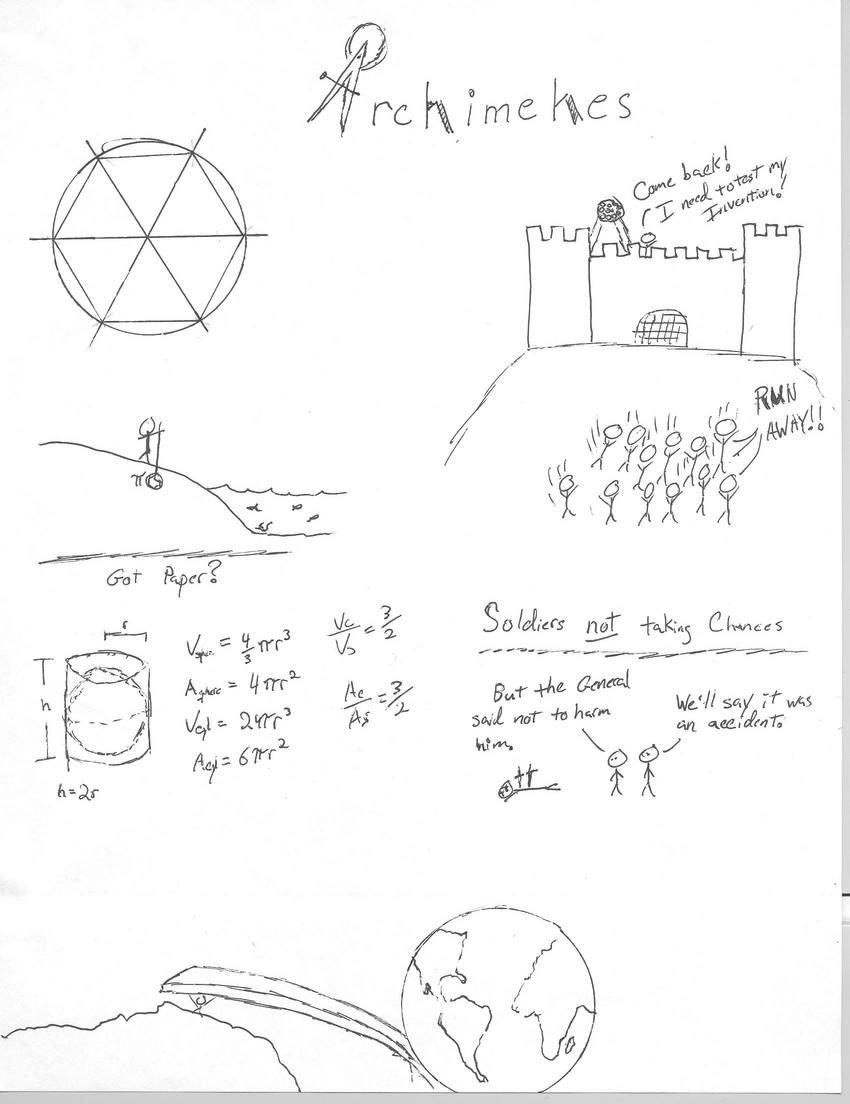 Archimedes
Come back!
I need to test my
Invention!
RUN
AWAY!!
π
Got Paper?
r
h
h=2r
V_spher. = 4/3 πr³
A_sphere = 4πr²
V_cyl = 2πr³
A_cyl = 6πr²
Vc/Vs = 3/2
Ac/As = 3/2
Soldiers not taking Chances
But the General
said not to harm
him.
We'll say it was
an accident.